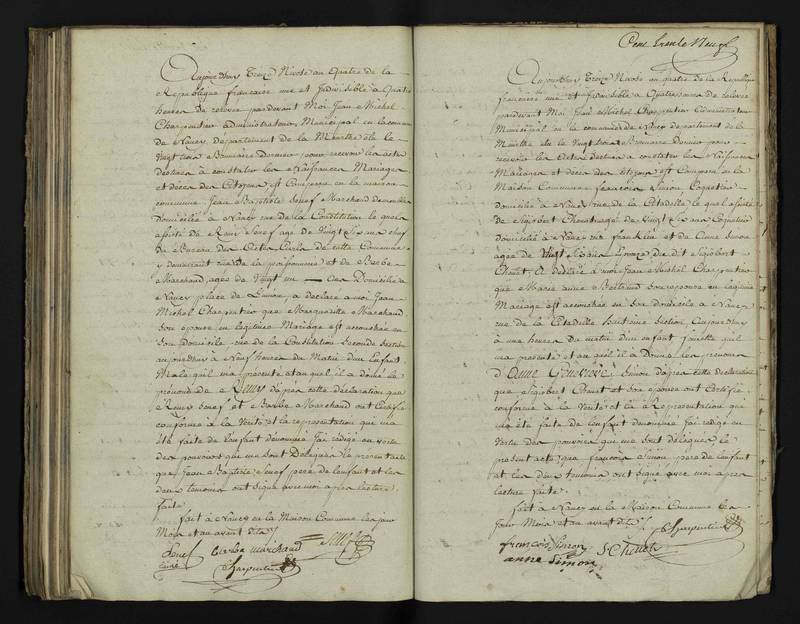 Aujourdhuy Treize Nivose an quatre de la
Republique francaise une et Indivisible a quatre
heures de relevée pardevant Moi Jean Michel
Charpentier administrateur Municipal en la commune
de Nancy departement de la Meurthe élu le
Vingt trois Brumaire dernier pour recevoir les actes
destinés a constater les Naissances Mariages
et décès des Citoyens est Comparu en la maison
commune Jean Baptiste Marchand
domicilié a Nancy rue de la Constitution le quel
assisté de Remy agé de Vingt Six ans chef
du Bureau des Actes Civils de cette Commune
y demeurant rue de la et de Barbe
Marchand agée de Vingt un ans Domiciliée a
Nancy place de a declaré a moi Jean
Michel Charpentier que Marguerite Marchand
son épouse en legitime Mariage est accouchée en
son domicile rue de la Constitution seconde section
aujourdhuy a Neuf heures du Matin dun Enfant
Male quil ma présenté et au quel il a donné le
prénom de Remy daprès cette déclaration que
Remy et Barbe Marchand ont Certifié
conforme a la Verité et la représentation qui ma
été faite de lenfant dénommé Jai redigé en vertu
des pouvoirs qui me sont Délégués le présent acte
que Jean Baptiste pere de lenfant et les
deux temoins ont signé avec moi apres lecture
faite
fait a Nancy en la Maison Commune les jour
Mois et an avant dits
barbe marchand
Charpentier
Cent trente Neuf
Aujourdhuy Treize Nivose an quatre de la Republique
francaise une et Indivisible a quatre heures de relevée
pardevant Moi Jean Michel Charpentier administrateur
Municipal en la commune de Nancy departement de la
Meurthe élu le Vingt trois Brumaire dernier pour
recevoir les Actes destinés a constater les Naissances
Mariages et décès des citoyens est Comparu en la
Maison Commune francois Simon Coquetier
domicilié a Nancy rue de la Citadelle le quel assisté
de Sigisbert de Vingt Six ans Coquetier
domicilié a Nancy rue franklin et de Anne Simon
agée de Vingt
a déclaré a moi Jean Michel Charpentier
que Marie anne Bertrand son epouse en legitime
Mariage est accouchée en son domicile a Nancy
rue de la Citadelle huitieme section aujourdhuy
a une heure du matin dun enfant femelle quil
ma presenté et au quel il a donné les prenoms
d'Anne Simon daprès cette declaration
que Sigisbert et son epouse ont Certifié
conforme a la Verité et la Representation qui
ma été faite de lenfant denommé Jai redigé en
Vertu des pouvoirs qui me sont delegués le
présent acte que francois Simon pere de lenfant
et les deux temoins ont signé avec moi apres
lecture faite
fait a Nancy en la Maison Commune les
jour Mois et an avant dits
Charpentier
francois Simon
anne Simon